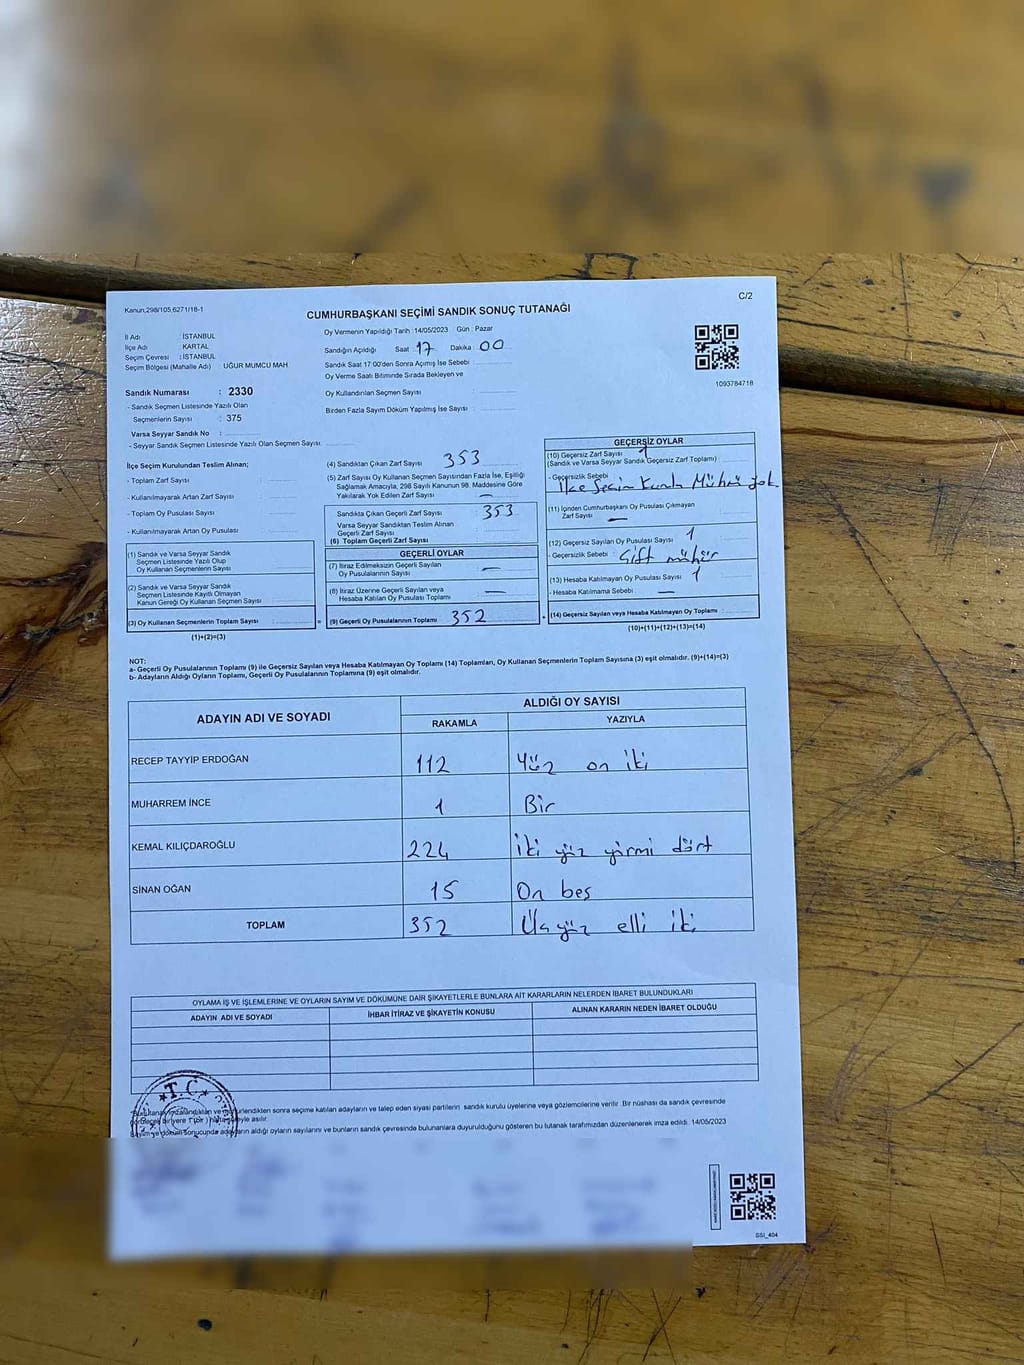 Kanun,298/105,6271/18-1
C/2
CUMHURBAŞKANI SEÇİMİ SANDIK SONUÇ TUTANAĞI
İl Adı : İSTANBUL
İlçe Adı : KARTAL
Seçim Çevresi : İSTANBUL
Seçim Bölgesi (Mahalle Adı) UĞUR MUMCU MAH
Oy Vermenin Yapıldığı Tarih :14/05/2023 Gün : Pazar
Sandığın Açıldığı Saat 17 Dakika 00
Sandık Saat 17:00'den Sonra Açımış İse Sebebi
Oy Verme Saati Bitiminde Sırada Bekleyen ve
Oy Kullandırılan Seçmen Sayısı :
Birden Fazla Sayım Döküm Yapılmış İse Sayısı :
1093784718
Sandık Numarası : 2330
- Sandık Seçmen Listesinde Yazılı Olan
Seçmenlerin Sayısı : 375
Varsa Seyyar Sandık No :
- Seyyar Sandık Seçmen Listesinde Yazılı Olan Seçmen Sayısı
İlçe Seçim Kurulundan Teslim Alınan;
- Toplam Zarf Sayısı :
- Kullanılmayarak Artan Zarf Sayısı :
- Toplom Oy Pusulası Sayısı :
- Kullanılmayarak Artan Oy Pusulası
(1) Sandık ve Varsa Seyyar Sandık
Seçmen Listesinde Yazılı Olup
Oy Kullanan Seçmenlerin Sayısı
(2) Sandık ve Varsa Seyyar Sandık
Seçmen Listesinde Kayıtlı Olmayan
Kanun Gereği Oy Kullanan Seçmen Sayısı
(3) Oy Kullanan Seçmenlerin Toplam Sayısı =
(1)+(2)=(3)
(4) Sandıktan Çıkan Zarf Sayısı 353
(5) Zarf Sayısı Oy Kullanan Seçmen Sayısından Fazla İse, Eşitliği
Sağlamak Amacıyla, 298 Sayılı Kanunun 98. Maddesine Göre
Yakılarak Yok Edilen Zarf Sayısı : —
Sandıkta Çıkan Geçerli Zarf Sayısı 353
Varsa Seyyar Sandıktan Teslim Alınan
Geçerli Zarf Sayısı
(6) Toplam Geçerli Zarf Sayısı
GEÇERLİ OYLAR
(7) İtiraz Edilmeksizin Geçerli Sayılan
Oy Pusulalarının Sayısı —
(8) İtiraz Üzerine Geçerli Sayılan veya
Hesaba Katılan Oy Pusulası Toplamı —
(9) Geçerli Oy Pusulalarının Toplamı 352 +
GEÇERSİZ OYLAR
(10) Geçersiz Zarf Sayısı 1
(Sandık ve Varsa Seyyar Sandık Geçersiz Zarf Toplamı)
- Geçersizlik Sebebi
İlçe Seçim Kurulu Mührü yok.
(11) İçinden Cumhurbaşkanı Oy Pusulası Çıkmayan
Zarf Sayısı —
(12) Geçersiz Sayılan Oy Pusulası Sayısı 1
- Geçersizlik Sebebi : Çift mühür
(13) Hesaba Katılmayan Oy Pusulası Sayısı 1
- Hesaba Katılmama Sebebi : —
(14) Geçersiz Sayılan veya Hesaba Katılmayan Oy Toplamı
(10)+(11)+(12)+(13)=(14)
NOT:
a- Geçerli Oy Pusulalarının Toplamı (9) ile Geçersiz Sayılan veya Hesaba Katılmayan Oy Toplamı (14) Toplamları, Oy Kullanan Seçmenlerin Toplam Sayısına (3) eşit olmalıdır. (9)+(14)=(3)
b- Adayların Aldığı Oyların Toplamı, Geçerli Oy Pusulalarının Toplamına (9) eşit olmalıdır.
ADAYIN ADI VE SOYADI ALDIĞI OY SAYISI
RAKAMLA YAZIYLA
RECEP TAYYİP ERDOĞAN 112 Yüz on iki
MUHARREM İNCE 1 Bir
KEMAL KILIÇDAROĞLU 224 İki yüz yirmi dört
SİNAN OĞAN 15 On beş
TOPLAM 352 Üç yüz elli iki
OYLAMA İŞ VE İŞLEMLERİNE VE OYLARIN SAYIM VE DÖKÜMÜNE DAİR ŞİKAYETLERLE BUNLARA AİT KARARLARIN NELERDEN İBARET BULUNDUKLARI
ADAYIN ADI VE SOYADI İHBAR İTİRAZ VE ŞİKAYETİN KONUSU ALINAN KARARIN NEDEN İBARET OLDUĞU
T.C.
sonra seçime katılan adayların ve talep eden siyasi partilerin sandık kurulu üyelerine veya gözlemcilerine verilir. Bir nüshası da sandık çevresinde
asılır.
aldığı oyların sayılarını ve bunların sandık çevresinde bulunanlara duyurulduğunu gösteren bu tutanak tarafımızdan düzenlenerek imza edildi. 14/05/2023
SSI_404